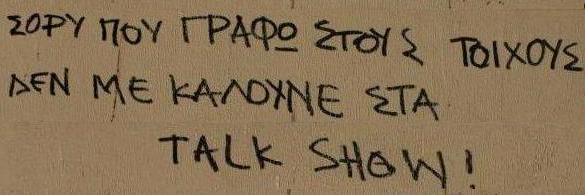 ΣΟΡΥ ΠΟΥ ΓΡΑΦΩ ΣΤΟΥΣ ΤΟΙΧΟΥΣ
ΔΕΝ ΜΕ ΚΑΛΟΥΝΕ ΣΤΑ
TALK SHOW!